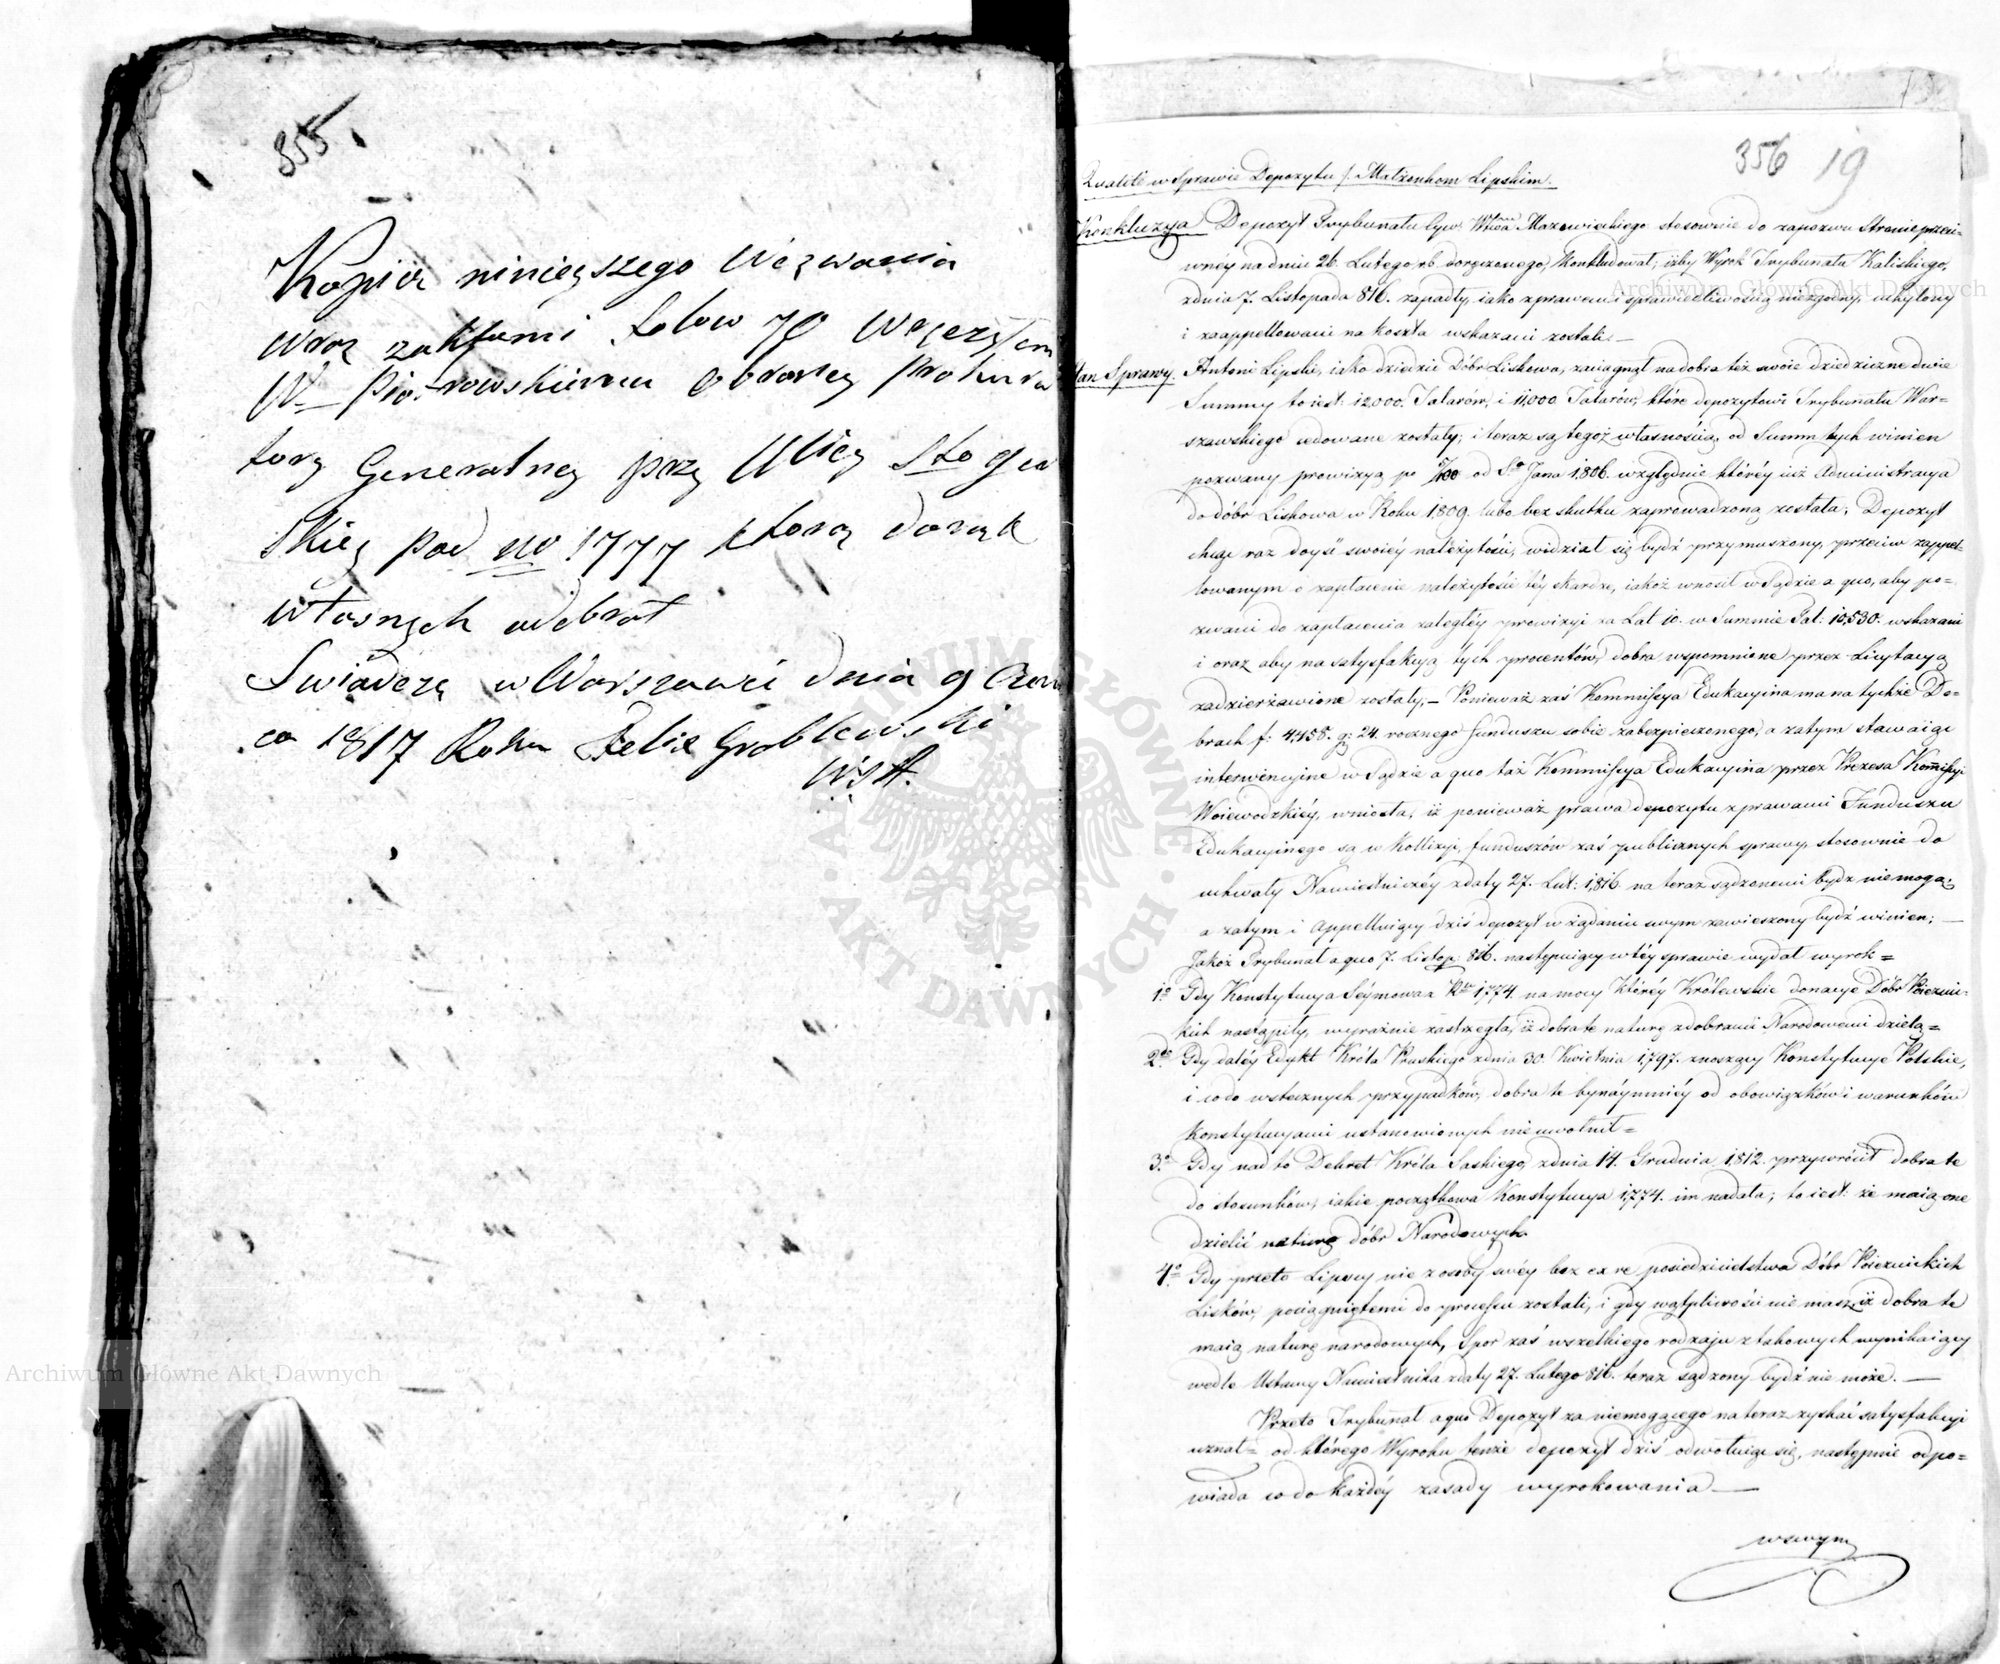 355.
Kopia ninieyszego Wezwania
wraz zaktami Lolow 70 Węczysłem
W. Piotrowskiemu obroncy Prokura
tory Generalney przy Ulicy Sto Ju
Skiey pod No 1777 ktorą do rąk
własnych odebrał
Swiadczę w Warszawie dnia 9 Czerw
ca 1817 Roku Felix Groblewski
W.S.A.
356 19
Qualité w Sprawie Depozytu /: Małżonkom Lipskim.
Konkluzya Depozyt Trybunału Cyw: Wtwa Mazowieckiego stosownie do zapozwu Stronie przeci-
wnéy na dniu 26. Lutego r.b. doręczonego, konkludował, iżby Wyrok Trybunału Kaliskiego,
z dnia 7. Listopada 816. zapadły, iako z prawem i sprawiedliwością niezgodny, uchylony
i zaappellowani na koszta wskazani zostali. —
Stan Sprawy. Antoni Lipski, iako dziedzic Dóbr Liskowa, zaciągnął na dobra też swoie dziedziczne dwie
Summy to iest: 12,000. Talarów, i 11,000 Talarów, które depozytowi Trybunału War=
szawskiego cedowane zostały; i teraz są tegoż własnością, od Summ tych winien
pozwany prowizyą po 5/100 od Sgo Jana 1806. względnie któréy iuż Administracya
do dóbr Liskowa w Roku 1809. lubo bez skutku zaprowadzoną została; Depozyt
chcąc raz doyść swoiéy należytości, widział się bydź przymuszony, przeciw zappel-
lowanym o zapłacenie należytości téy skardze, iakoż wnosił w Sądzie a quo, aby po=
zwani do zapłacenia zaległéy prowizyi za Lat 10. w Summie Tal: 10,530. wskazani
i oraz aby na satysfakcyą tych procentów, dobra wspomnione przez Licytacyą
zadzierżawione zostały. — Ponieważ zaś Kommissya Edukacyina ma na tychże Do=
brach f: 4,458. g: 24. rocznego funduszu sobie zabezpieczonego, a zatym stawaiąc
interwencyine w Sądzie a quo taż Kommissya Edukacyina przez Prezesa Kommissyi
Woiewodzkiéy, wniosła, iż ponieważ prawa depozytu z prawami Funduszu
Edukacyinego są w Kollizyi, funduszów zaś publicznych sprawy, stosownie do
uchwały Namiestniczéy z daty 27. Lut: 1816. na teraz sądzonemi bydź niemogą;
a zatym i appelluiący dziś depozyt w żądaniu swym zawieszony bydź winien; —
Jakoż Trybunał a quo 7. Listop: 816. następuiący w téy sprawie wydał wyrok =
1o Gdy Konstytucya Seymowa z Rku 1774. na mocy któréy Królewskie donacye Dóbr Poiezuic-
kich nastąpiły, wyraźnie zastrzegła, iż dobra te naturę z dobrami Narodowemi dzielą =
2o Gdy daléy Edykt Króla Pruskiego z dnia 30. Kwietnia 1797. znoszący Konstytucye Polskie,
i co do wstecznych przypadków, dobra te bynáymniéy od obowiązków i warunków
Konstytucyami ustanowionych nie uwolnił =
3o Gdy nad to Dekret Króla Saskiego z dnia 14. Grudnia 1812. przywrócił dobra te
do stosunków, iakie początkowa Konstytucya 1774. im nadała; to iest: że maią one
dzielić naturę dóbr Narodowych.
4o Gdy przeto Lipscy nie z osoby swéy bez ex re posiedzicielstwa Dóbr Poiezuickich
Lisków, pociągniętemi do processu zostali, i gdy wątpliwości nie masz, iż dobra te
maią naturę narodowych, Spór zaś wszelkiego rodzaju z takowych wynikaiący
wedle Ustawy Namiestnika z daty 27. Lutego 816. teraz sądzony bydź nie może. —
Przeto Trybunał a quo Depozyt za niemogącego na teraz zyskać satysfakcyi
uznał = od którego Wyroku tenże depozyt dziś odwołuiąc się, następnie odpo=
wiada co do każdéy zasady wyrokowania —
w swym
Archiwum Główne Akt Dawnych
Archiwum Główne Akt Dawnych
ARCHIWUM GŁÓWNE AKT DAWNYCH